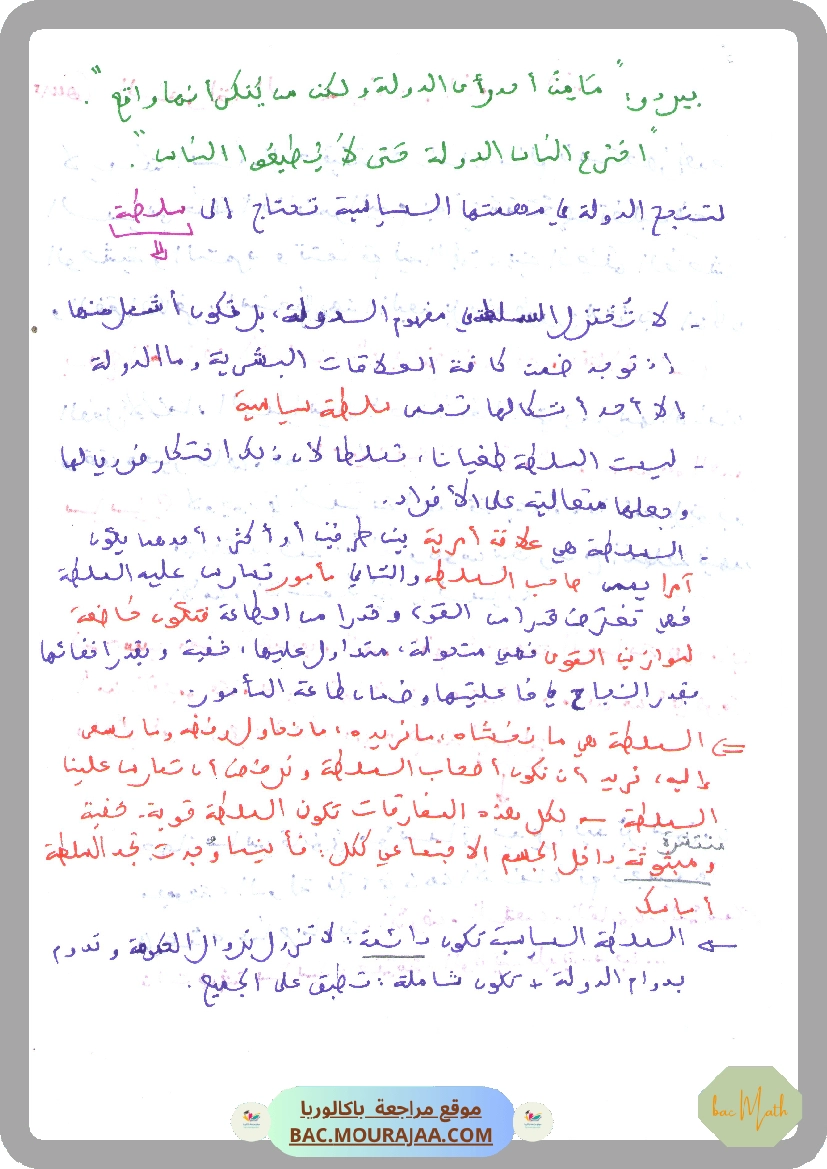 بيردو: "مَا مِنْ أحد رأى الدولة ولكن من يُنكر أنها واقع".
"اخترع الناس الدولة حتى لا يُطيعوا الناس".
لتنجح الدولة في مهمتها السياسية تحتاج إلى سلطة
- لا تُختزل السلطة في مفهوم الدولة، بل تكون أشمل منها.
إذ توجد ضمن كافة العلاقات البشرية وما الدولة
إلا أحد أشكالها تسمى سلطة سياسية.
- ليست السلطة طغيانا، تسلطا لأن ذلك احتكار فوريا لها
وجعلها متعالية على الأفراد.
- السلطة هي علاقة أمرية بين طرفين أو أكثر، أحدهما يكون
آمرا يسمى صاحب السلطة والثاني مأمور تمارس عليه السلطة
فهي تفترض قدرا من القوى وقدرا من الطاعة فتكون خاضعة
لموازين القوى فهي متحولة، متداول عليها، خفية وبقدر اخفائها
بقدر النجاح في فاعليتها وضمان طاعة المأمور.
⇐ السلطة هي ما نخشاه، ما نريده، ما نحاول رفضه وما نسعى
إليه، نريد أن نكون أصحاب السلطة ونرفض أن تمارس علينا
السلطة ← لكل هذه المفارقات تكون السلطة قوية. خفية
منتشرة
ومبثوثة داخل الجسم الاجتماعي ككل: فأينما وجدت تجد السلطة
أمامك
← السلطة السياسية تكون دائمة: لا تزول بزوال الحكومة وتدوم
بدوام الدولة + تكون شاملة: تطبق على الجميع.
موقع مراجعة باكالوريا
BAC.MOURAJAA.COM
bac Math